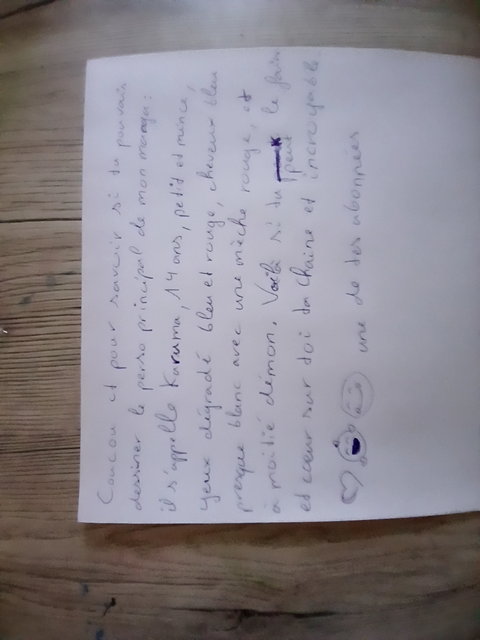 Coucou ct pour savoir si tu pouvais
dessiner le perso principal de mon manga:
il s'appelle Karuma, 14 ans, petit et mince,
yeux dégradé bleu et rouge, cheveux bleu
presque blanc avec une mèche rouge, et
à moitié démon. Voilà si tu peut le faire
et cœur sur toi ta chaîne et incroyable
une de tes abonnées